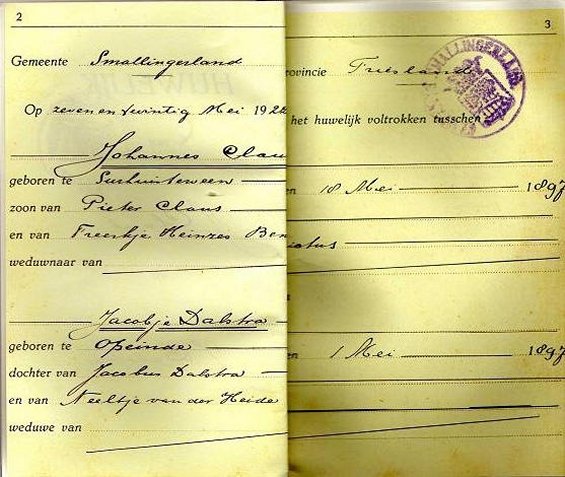 2 3
Gemeente Smallingerland rovincie Friesland
Op zeven en twintig Mei 192 het huwelijk voltrokken tusschen
Johannes Clau
geboren te Surhuisterveen en 18 Mei 1897
zoon van Pieter Claus
en van Freerkje Heinzes Ben ictus
weduwnaar van
Jacobje Dalstra
geboren te Opeinde en 1 Mei 1897
dochter van Jacobus Dalstra
en van Neeltje van der Heide
weduwe van
MALLINGERLAND